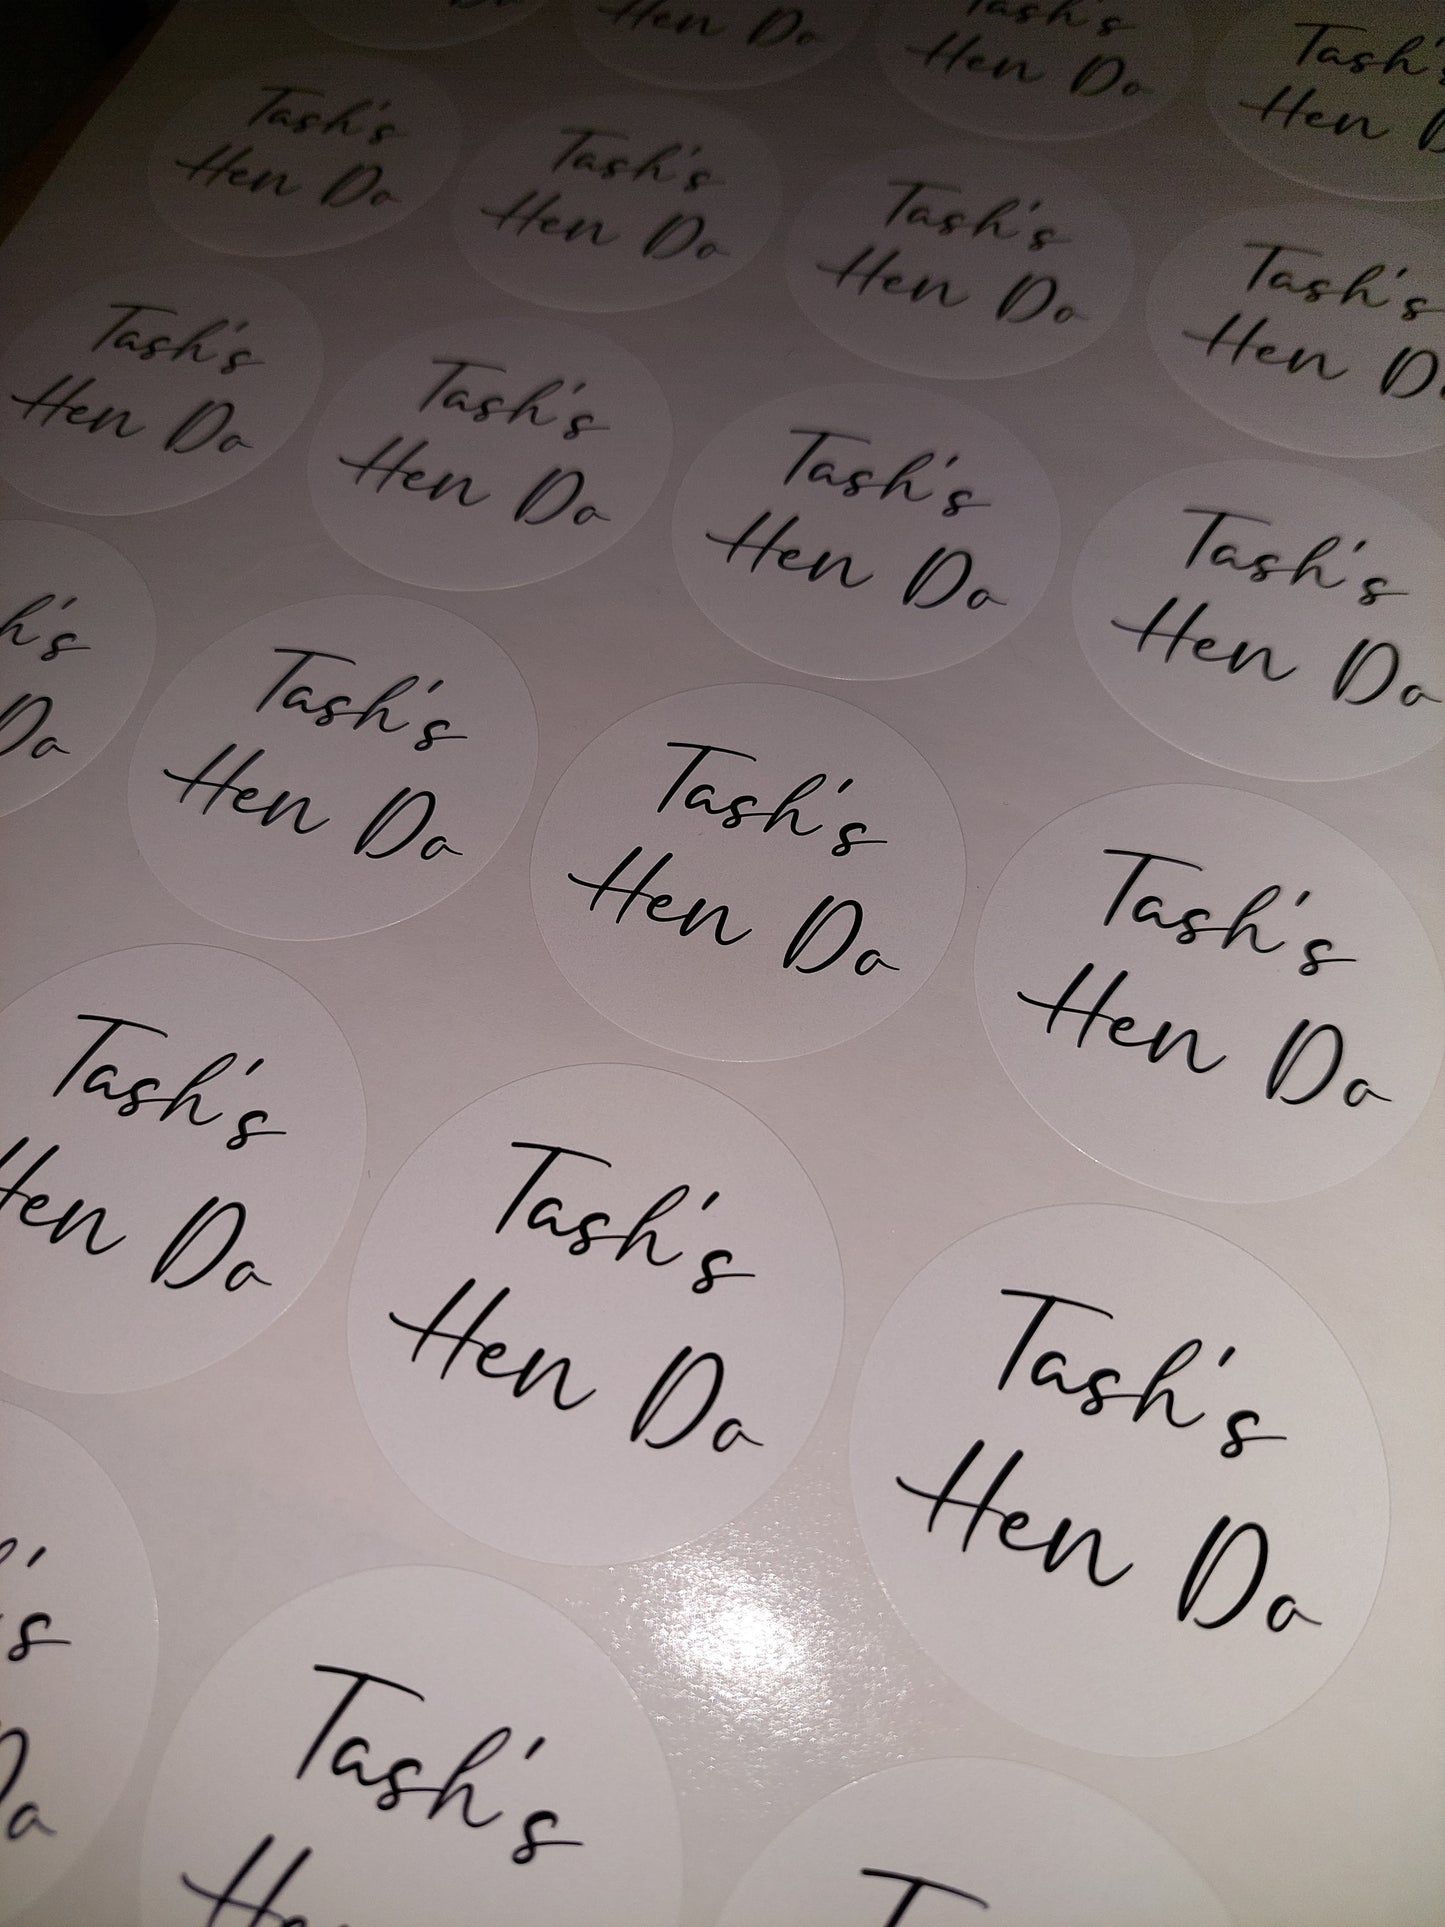 Do
Hen Do
Tash's
Hen Do
Tash's
Hen
Tash's
Hen Do
Tash's
Hen Do
Tash's
Hen Do
Tash's
Hen Do
Tash's
Hen Do
Tash's
Hen Do
Tash's
Hen Do
Tash's
Hen Do
Do
Tash's
Hen Do
Tash's
Hen Do
Tash's
Hen Do
Tash's
Hen Do
Tash's
Hen Do
Tash's
Hen Do
Tash's
Hen